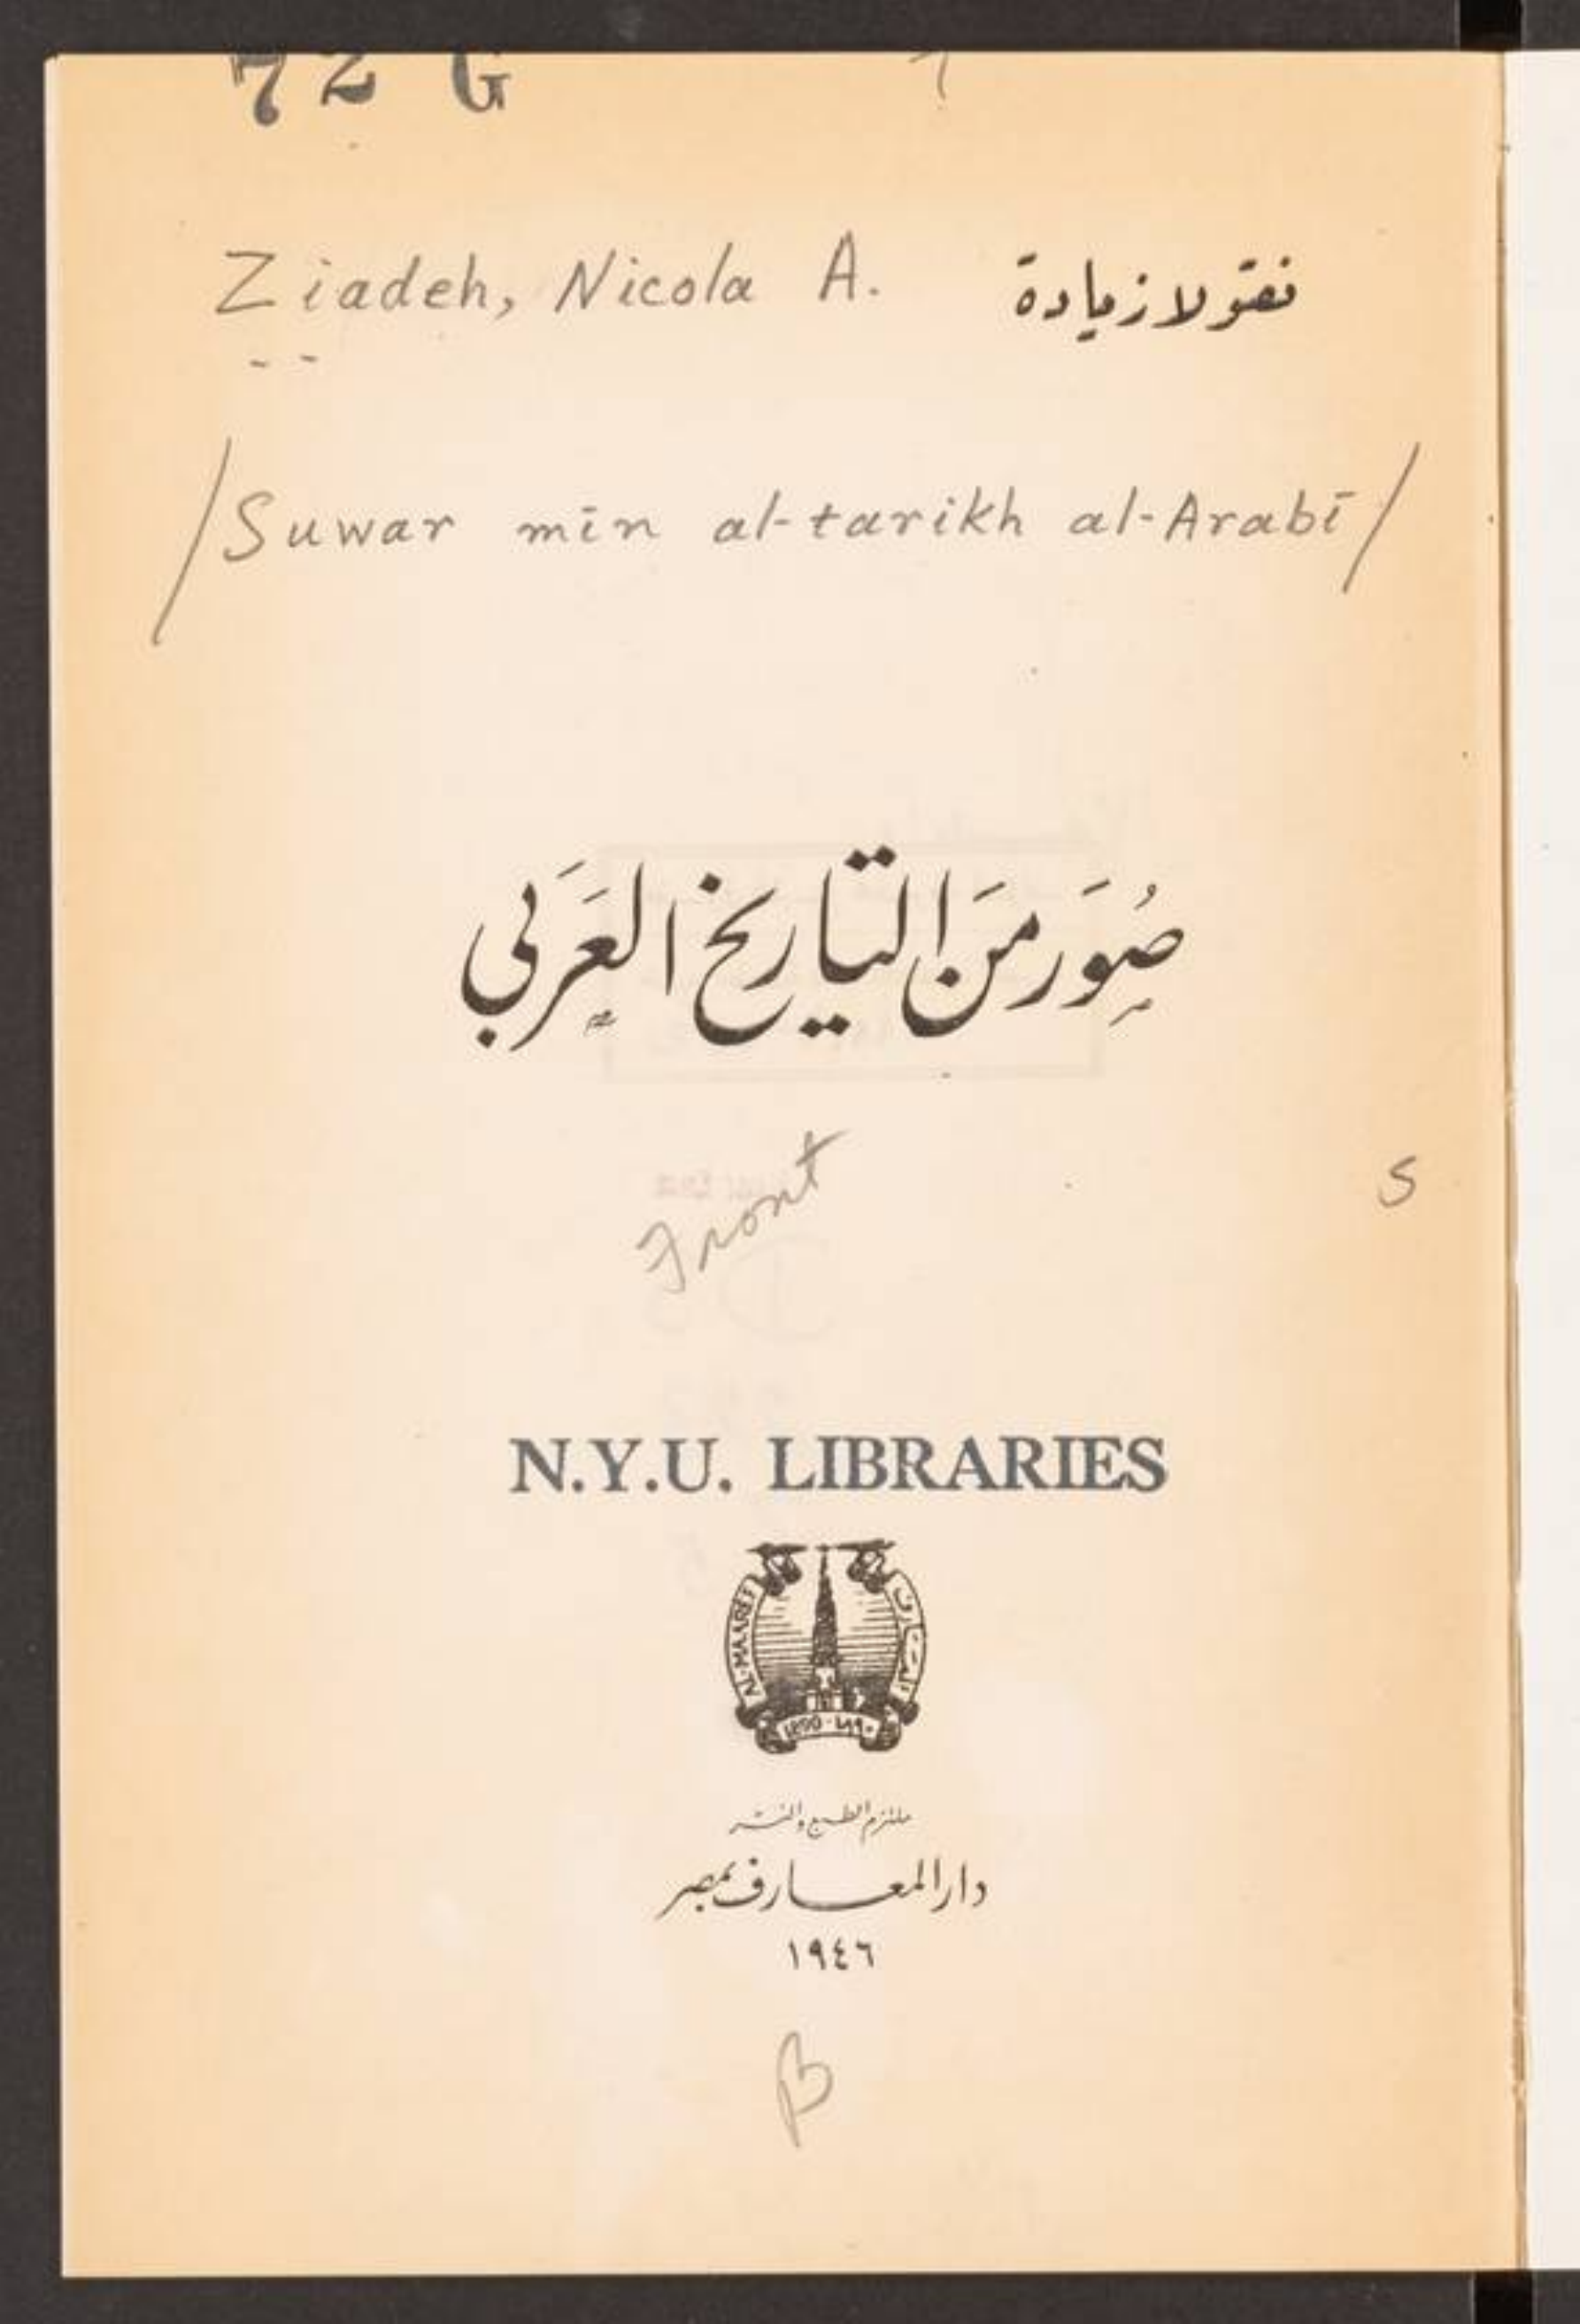 72 G
Ziadeh, Nicola A. نقولا زيادة
/Suwar min al-tarikh al-Arabī/
صُوَر مِنَ التاريخ العَرَبي
Front
S
N.Y.U. LIBRARIES
AL-MAAREF المعارف
1890 - ١٨٩٠
ملتزم الطبع والنشر
دار المعارف بمصر
١٩٤٦
B